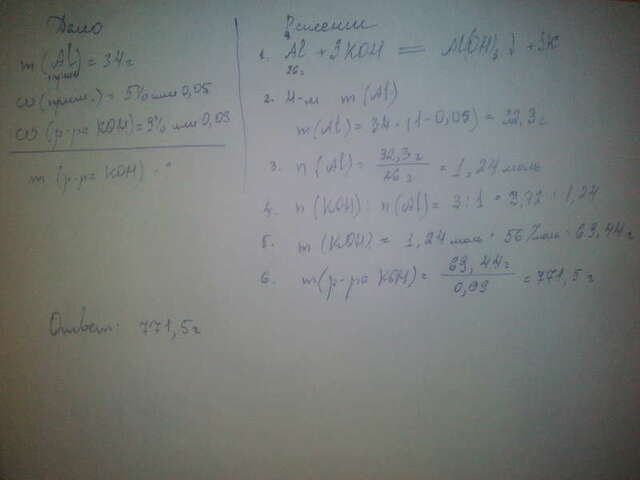 Дано
m (Al) = 34 г
ω (прим.) = 5% или 0,05
ω (р-ра KOH) = 9% или 0,09
m (р-ра KOH) - ?
Решение
1. Al + 3KOH = Al(OH)3 ↓ + 3K
26 г
2. Н-м m (Al)
m (Al) = 34 · (1 - 0,05) = 32,3 г
3. n (Al) = 32,3 г / 26 г = 1,24 моль
4. n (KOH) : n (Al) = 3 : 1 = 3,72 : 1,24
5. m (KOH) = 1,24 моль · 56 г/моль = 69,44 г
6. m (р-ра KOH) = 69,44 г / 0,09 = 771,5 г
Ответ: 771,5 г